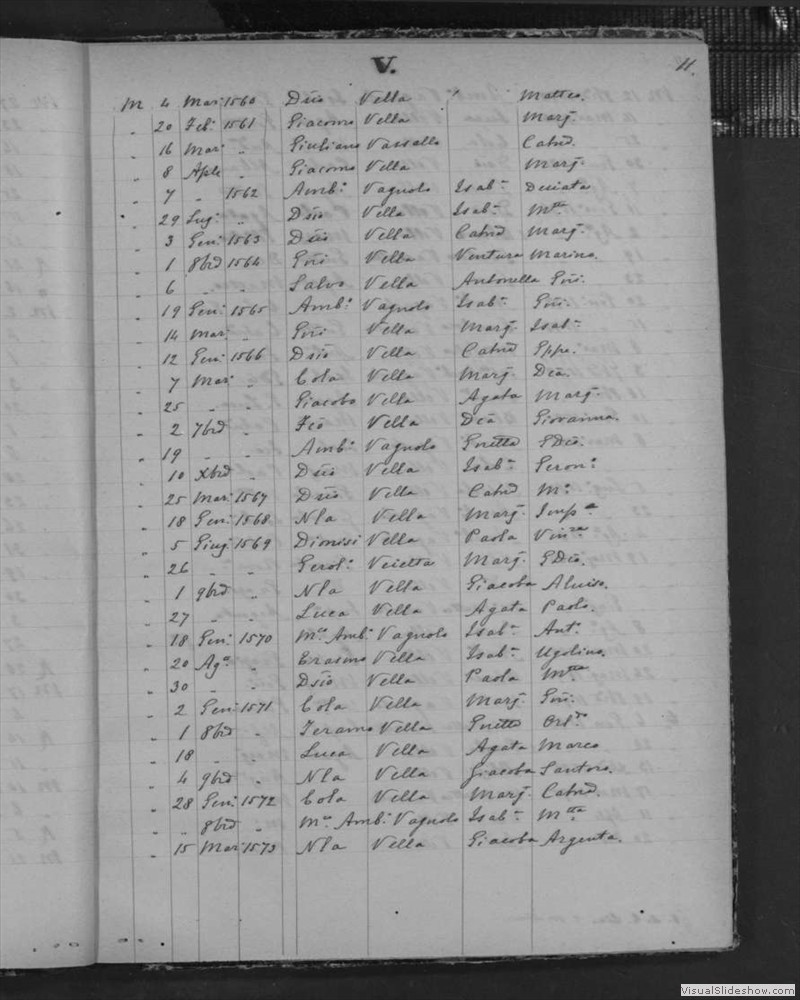 V.
11.
M 4 Mar: 1560 Dẽo Vella Matteo.
" 20 Feb: 1561 Giacomo Vella Marg:
" 16 Mar: " Giuliano Vassallo Catnd.
" 8 Aple " Giacomo Vella Marg:
" 7 " 1562 Amb: Vagnolo Isab: Desiata
" 29 Lug: " Dẽo Vella Isab: Mtta
" 3 Gen: 1563 Dẽo Vella Catnd Marg:
" 1 8brd 1564 Gni Vella Ventura Marino.
" 6 " " Salvo Vella Antonella Gni.
" 19 Gen: 1565 Amb: Vagnolo Isab: Gni.
" 14 Mar: " Gni Vella Marg: Isab:
" 12 Gen: 1566 Dẽo Vella Catnd Gppe.
" 7 Mar: " Cola Vella Marg: Dea.
" 25 " " Giacobo Vella Agata Marg:
" 2 7brd " Vella Dea Giovanna.
" 19 " " Amb: Vagnolo Gnetta
" 10 Xbrd " Dẽo Vella Isab: Geron:
" 25 Mar: 1567 Dẽo Vella Catnd M:
" 18 Gen: 1568 Nla Vella Marg: Impa
" 5 Giug: 1569 Dionisi Vella Paola
" 26 " " Gerol: Veietta Marg:
" 1 9brd " Nla Vella Giacoba Aluiso.
" 27 " " Luca Vella Agata Paolo.
" 18 Gen: 1570 Mro Amb: Vagnolo Isab: Ant:
" 20 Ago " Erasmo Vella Isab: Ugolino.
" 30 " " Dẽo Vella Paola Mtta
" 2 Gen: 1571 Cola Vella Marg: Gni:
" 1 8brd " Jeramo Vella Gnetta Orldo
" 18 " " Luca Vella Agata Marco
" 4 9brd " Nla Vella Giacoba Santoro.
" 28 Gen: 1572 Cola Vella Marg: Catnd.
" " 8brd " Mro Amb: Vagnolo Isab: Mtta
" 15 Mar: 1573 Nla Vella Giacoba Argenta.
VisualSlideshow.com